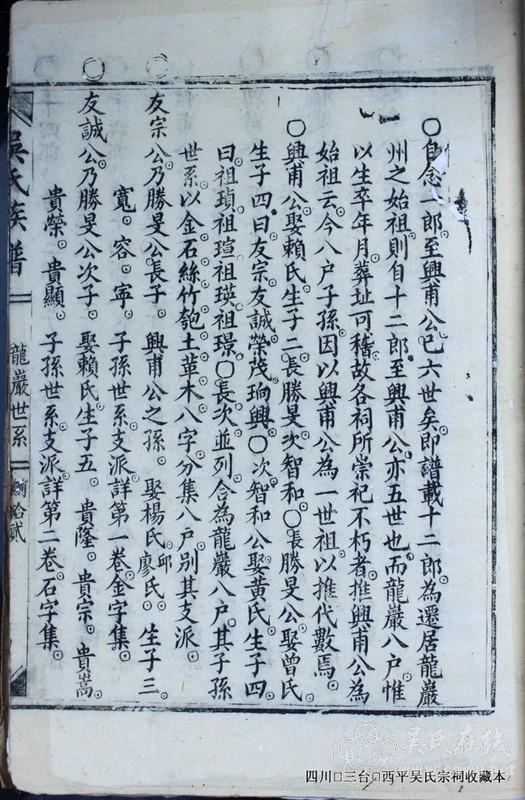 〇自念一郎至興甫公已六世矣即譜載十二郎為遷居龍巖
州之始祖則自十二郎至興甫公亦五世也而龍巖八戶惟
以生卒年月葬址可稽故各祠所崇祀不朽者推興甫公為
始祖云今八戶子孫因以興甫公為一世祖以推代數焉
〇興甫公娶賴氏生子二長勝旻次智和〇長勝旻公娶曾氏
生子四曰友宗友誠榮茂珦興〇次智和公娶黃氏生子四
曰祖瓆祖瑄祖瑛祖璟〇長次並列合為龍巖八戶其子孫
世系以金石絲竹匏土革木八字分集八戶別其支派
〇友宗公乃勝旻公長子。興甫公之孫。娶楊氏邱廖氏。生子三
寬。容。寗 子孫世系支派詳第一卷金字集。
〇友誠公乃勝旻公次子。娶賴氏生子五。貴隆。貴宗。貴嵩
貴榮。貴顯。子孫世系支派詳第二卷石字集。
吳氏族譜
龍巖世系
拾貳
吴氏在线
四川□三台□西平吴氏宗祠收藏本